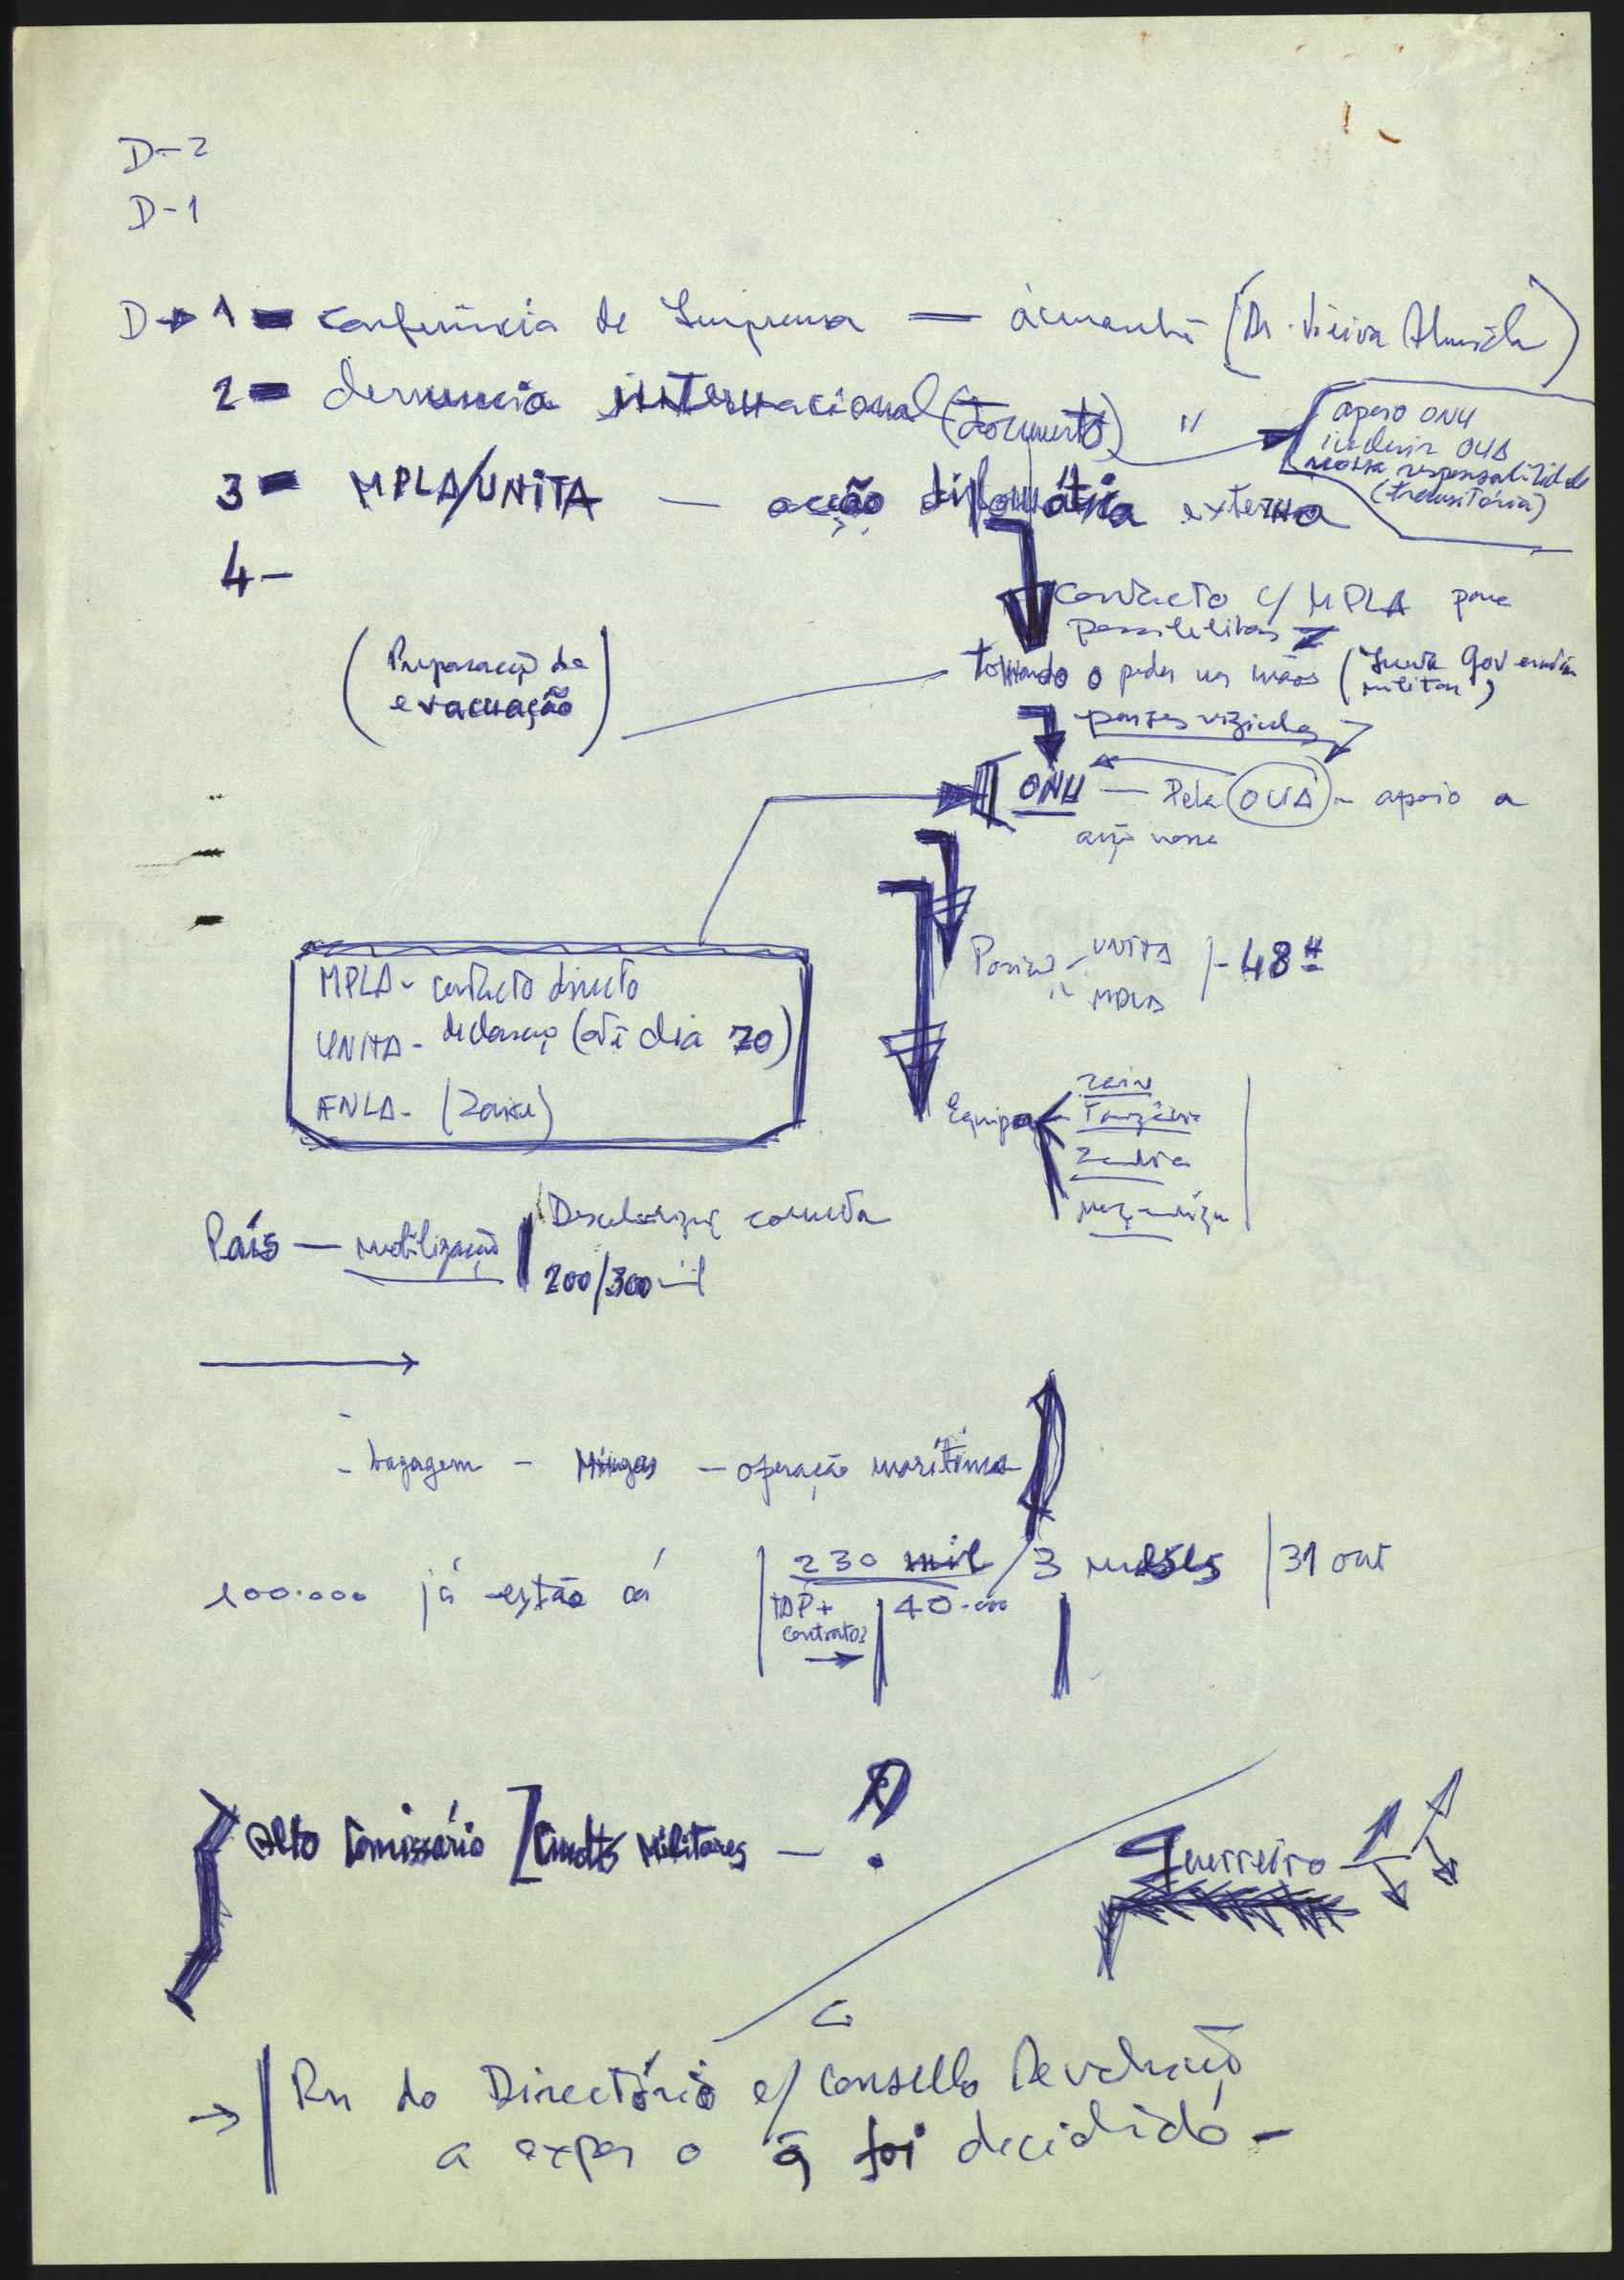 D-2
D-1
D → 1 = conferência de Imprensa — àmanhã (Dr. Vieira Almeida)
2 = denuncia internacional (documento) "
apoio ONU
OUA
nossa responsabilidade
(transitória)
3 = MPLA/UNITA — acção diplomática externa
4 -
contacto c/ MPLA para
(Preparação de
evacuação)
tomando o poder nas mãos ("Junta Gov
militar")
países vizinhos
ONU — Pela OUA - apoio a
acção nossa
UNITA
MPLA
- 48 H
MPLA - contacto directo
UNITA - declaração (até dia 20)
FNLA - (Zaire)
Equipa
Zaire
Tanzânia
Zambia
Moçambique
País — mobilização
Descolonização correcta
200/300 mil
- bagagem - - operação marítima
100.000 já estão cá
230 mil / 3 meses | 31 out
TAP +
contratos
40.000
Alto Comissário ] Cmdts Militares — ?
Guerreiro
→ Rn do Directório c/ Conselho Revolução
a expor o q̃ foi decidido -